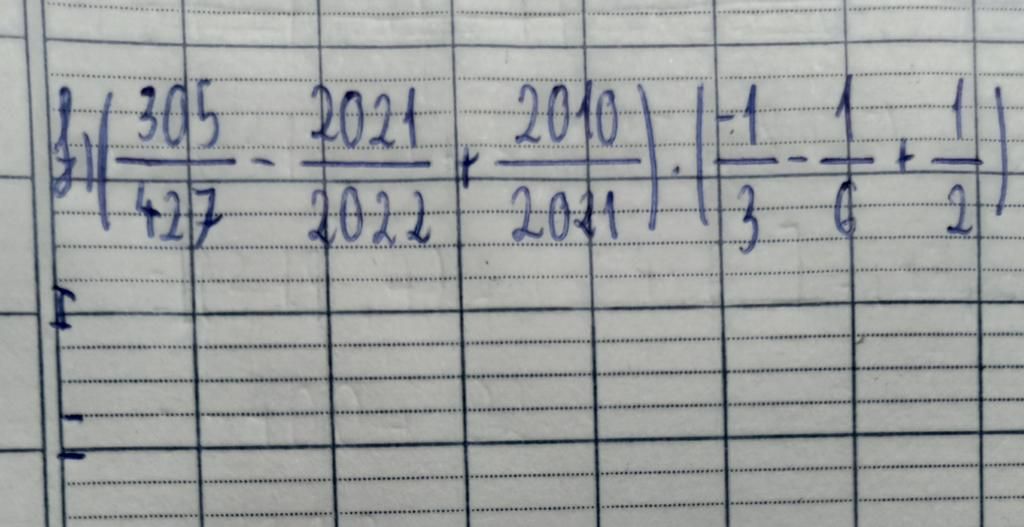 (305/427 - 2021/2022 + 2010/2021) . (-1/3 - 1/6 + 1/2)
=